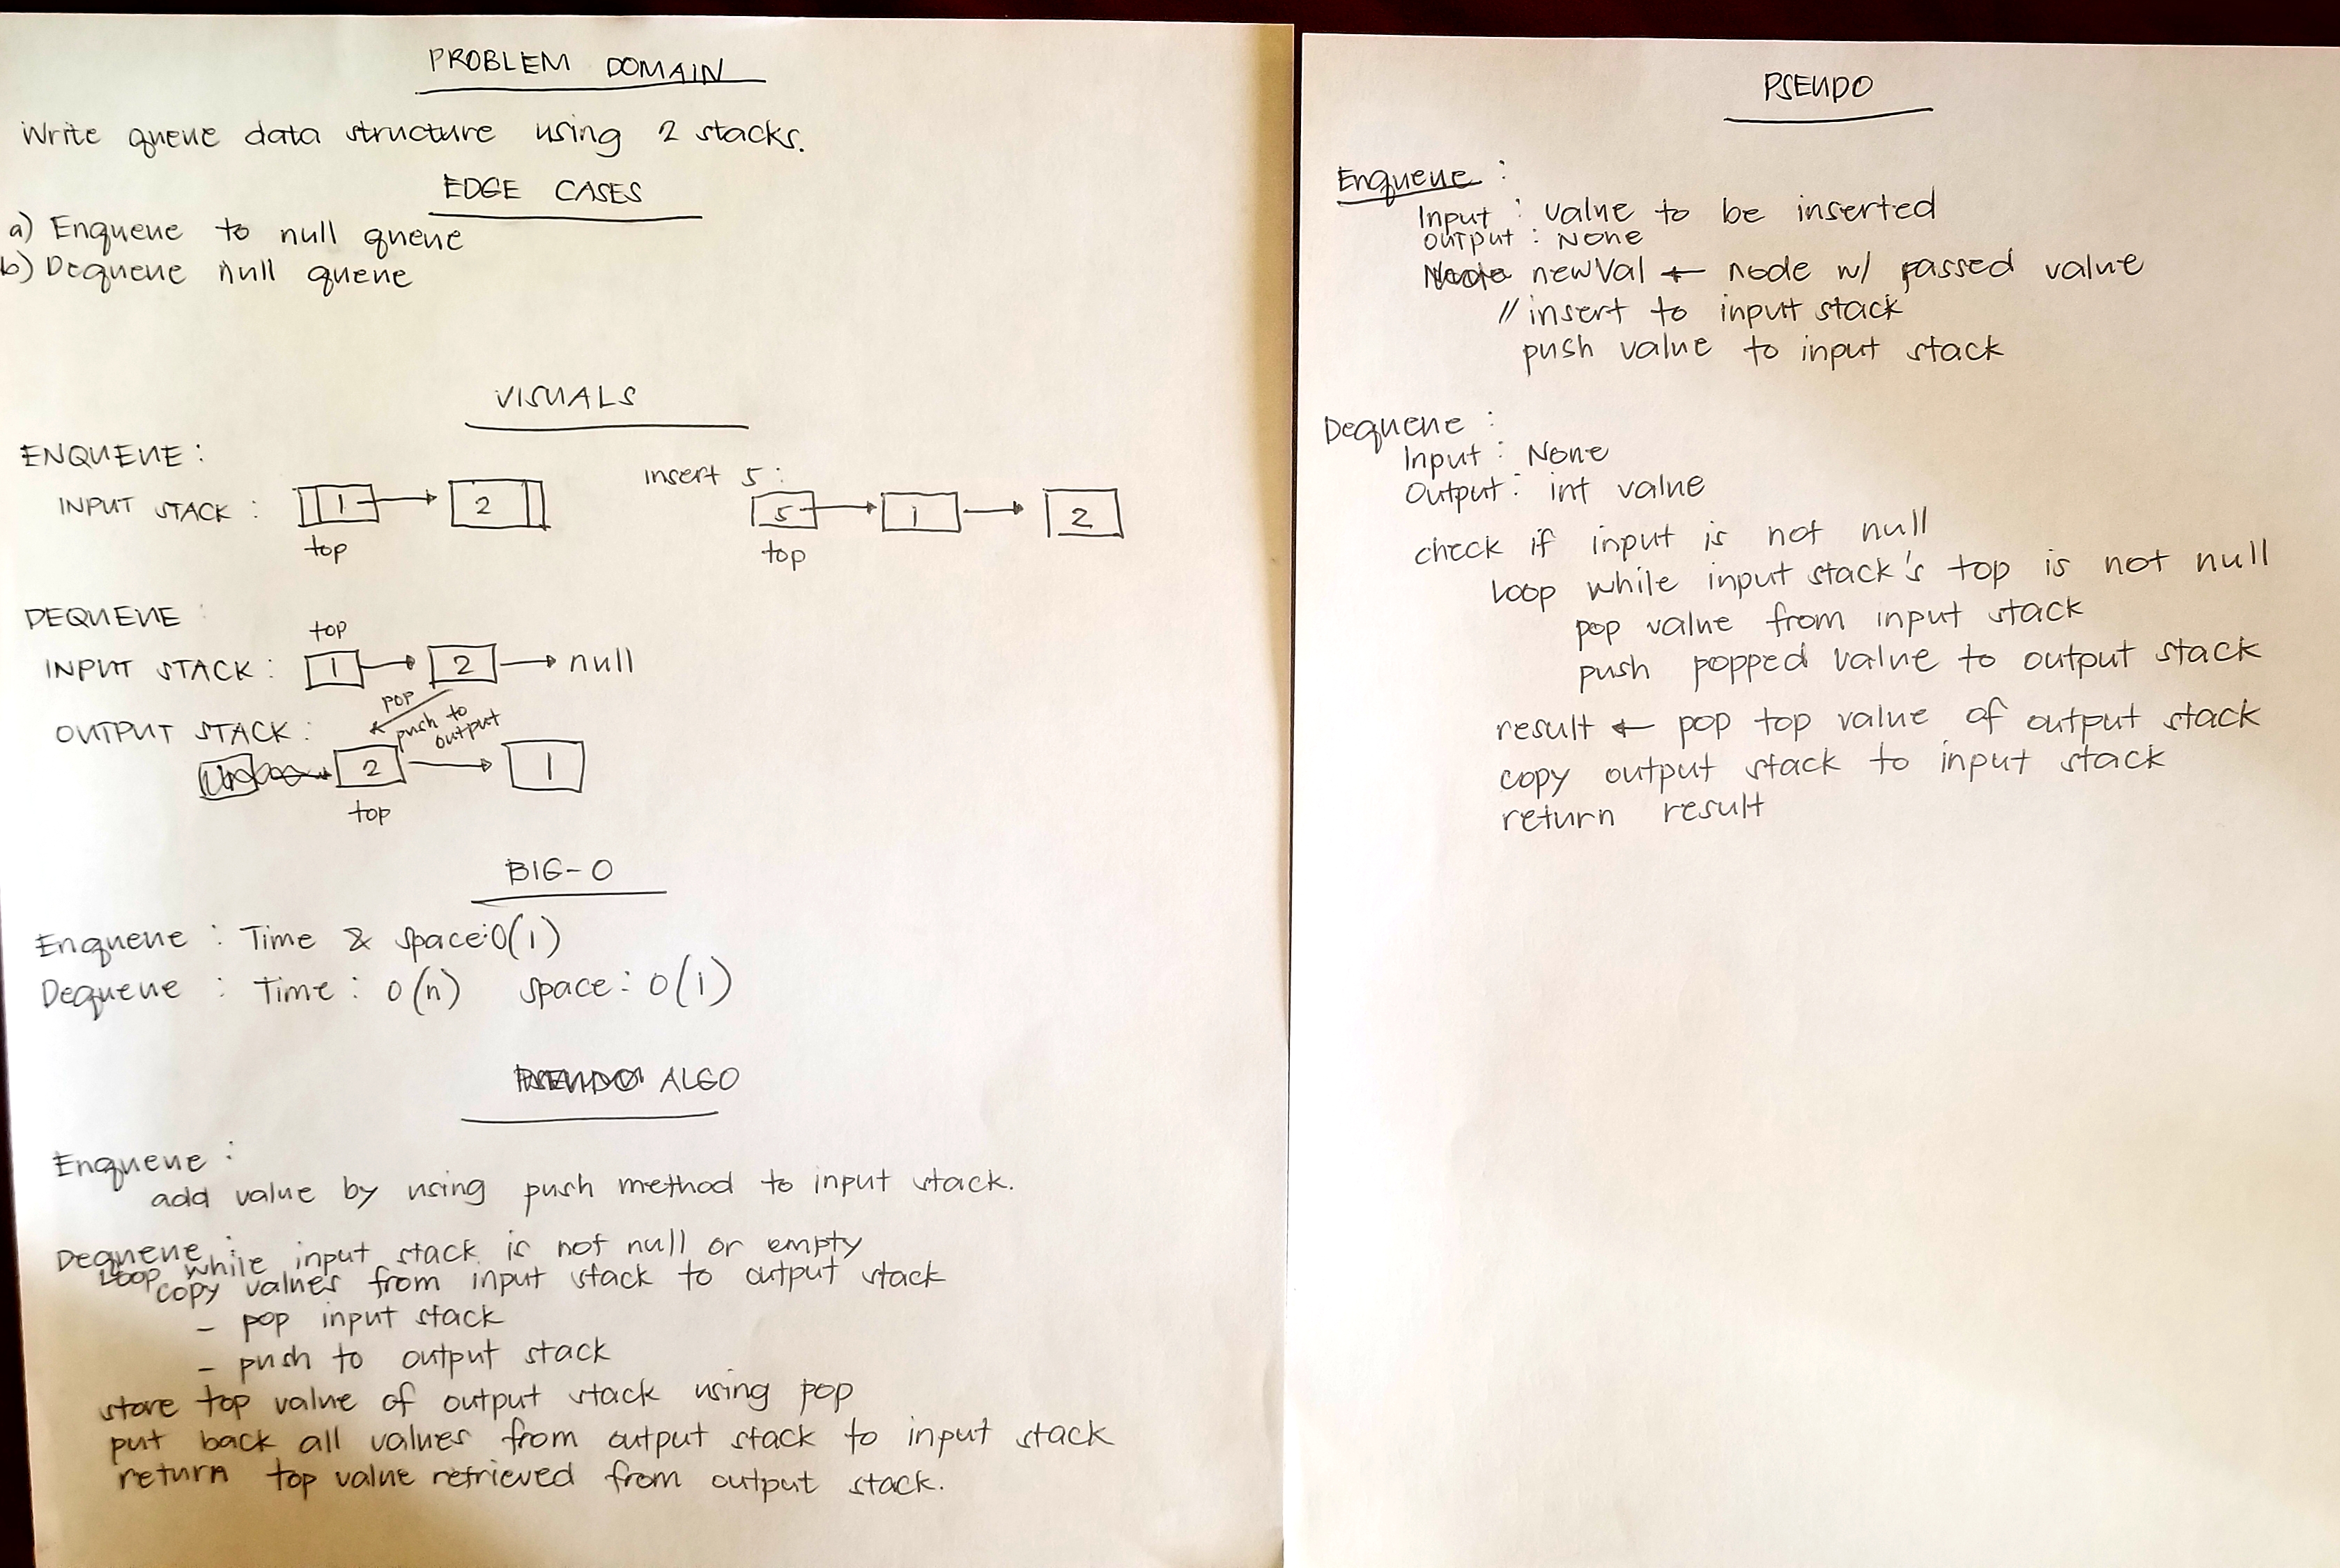 PROBLEM DOMAIN
Write queue data structure using 2 stacks.
EDGE CASES
a) Enqueue to null queue
b) Dequeue null queue
VISUALS
ENQUEUE :
insert 5 :
INPUT STACK : 1 2
5 1 2
top
top
DEQUEUE :
top
INPUT STACK : 1 2 null
pop
push to
output
OUTPUT STACK :
2 1
top
BIG-O
Enqueue : Time & space: O(1)
Dequeue : Time : O(n) space : O(1)
PSEUDO ALGO
Enqueue :
add value by using push method to input stack.
Dequeue :
Loop while input stack is not null or empty
copy values from input stack to output stack
- pop input stack
- push to output stack
store top value of output stack using pop
put back all values from output stack to input stack
return top value retrieved from output stack.
PSEUDO
Enqueue :
Input : value to be inserted
output : None
Node newVal ← node w/ passed value
// insert to input stack
push value to input stack
Dequeue :
Input : None
Output : int value
check if input is not null
Loop while input stack's top is not null
pop value from input stack
push popped value to output stack
result ← pop top value of output stack
copy output stack to input stack
return result